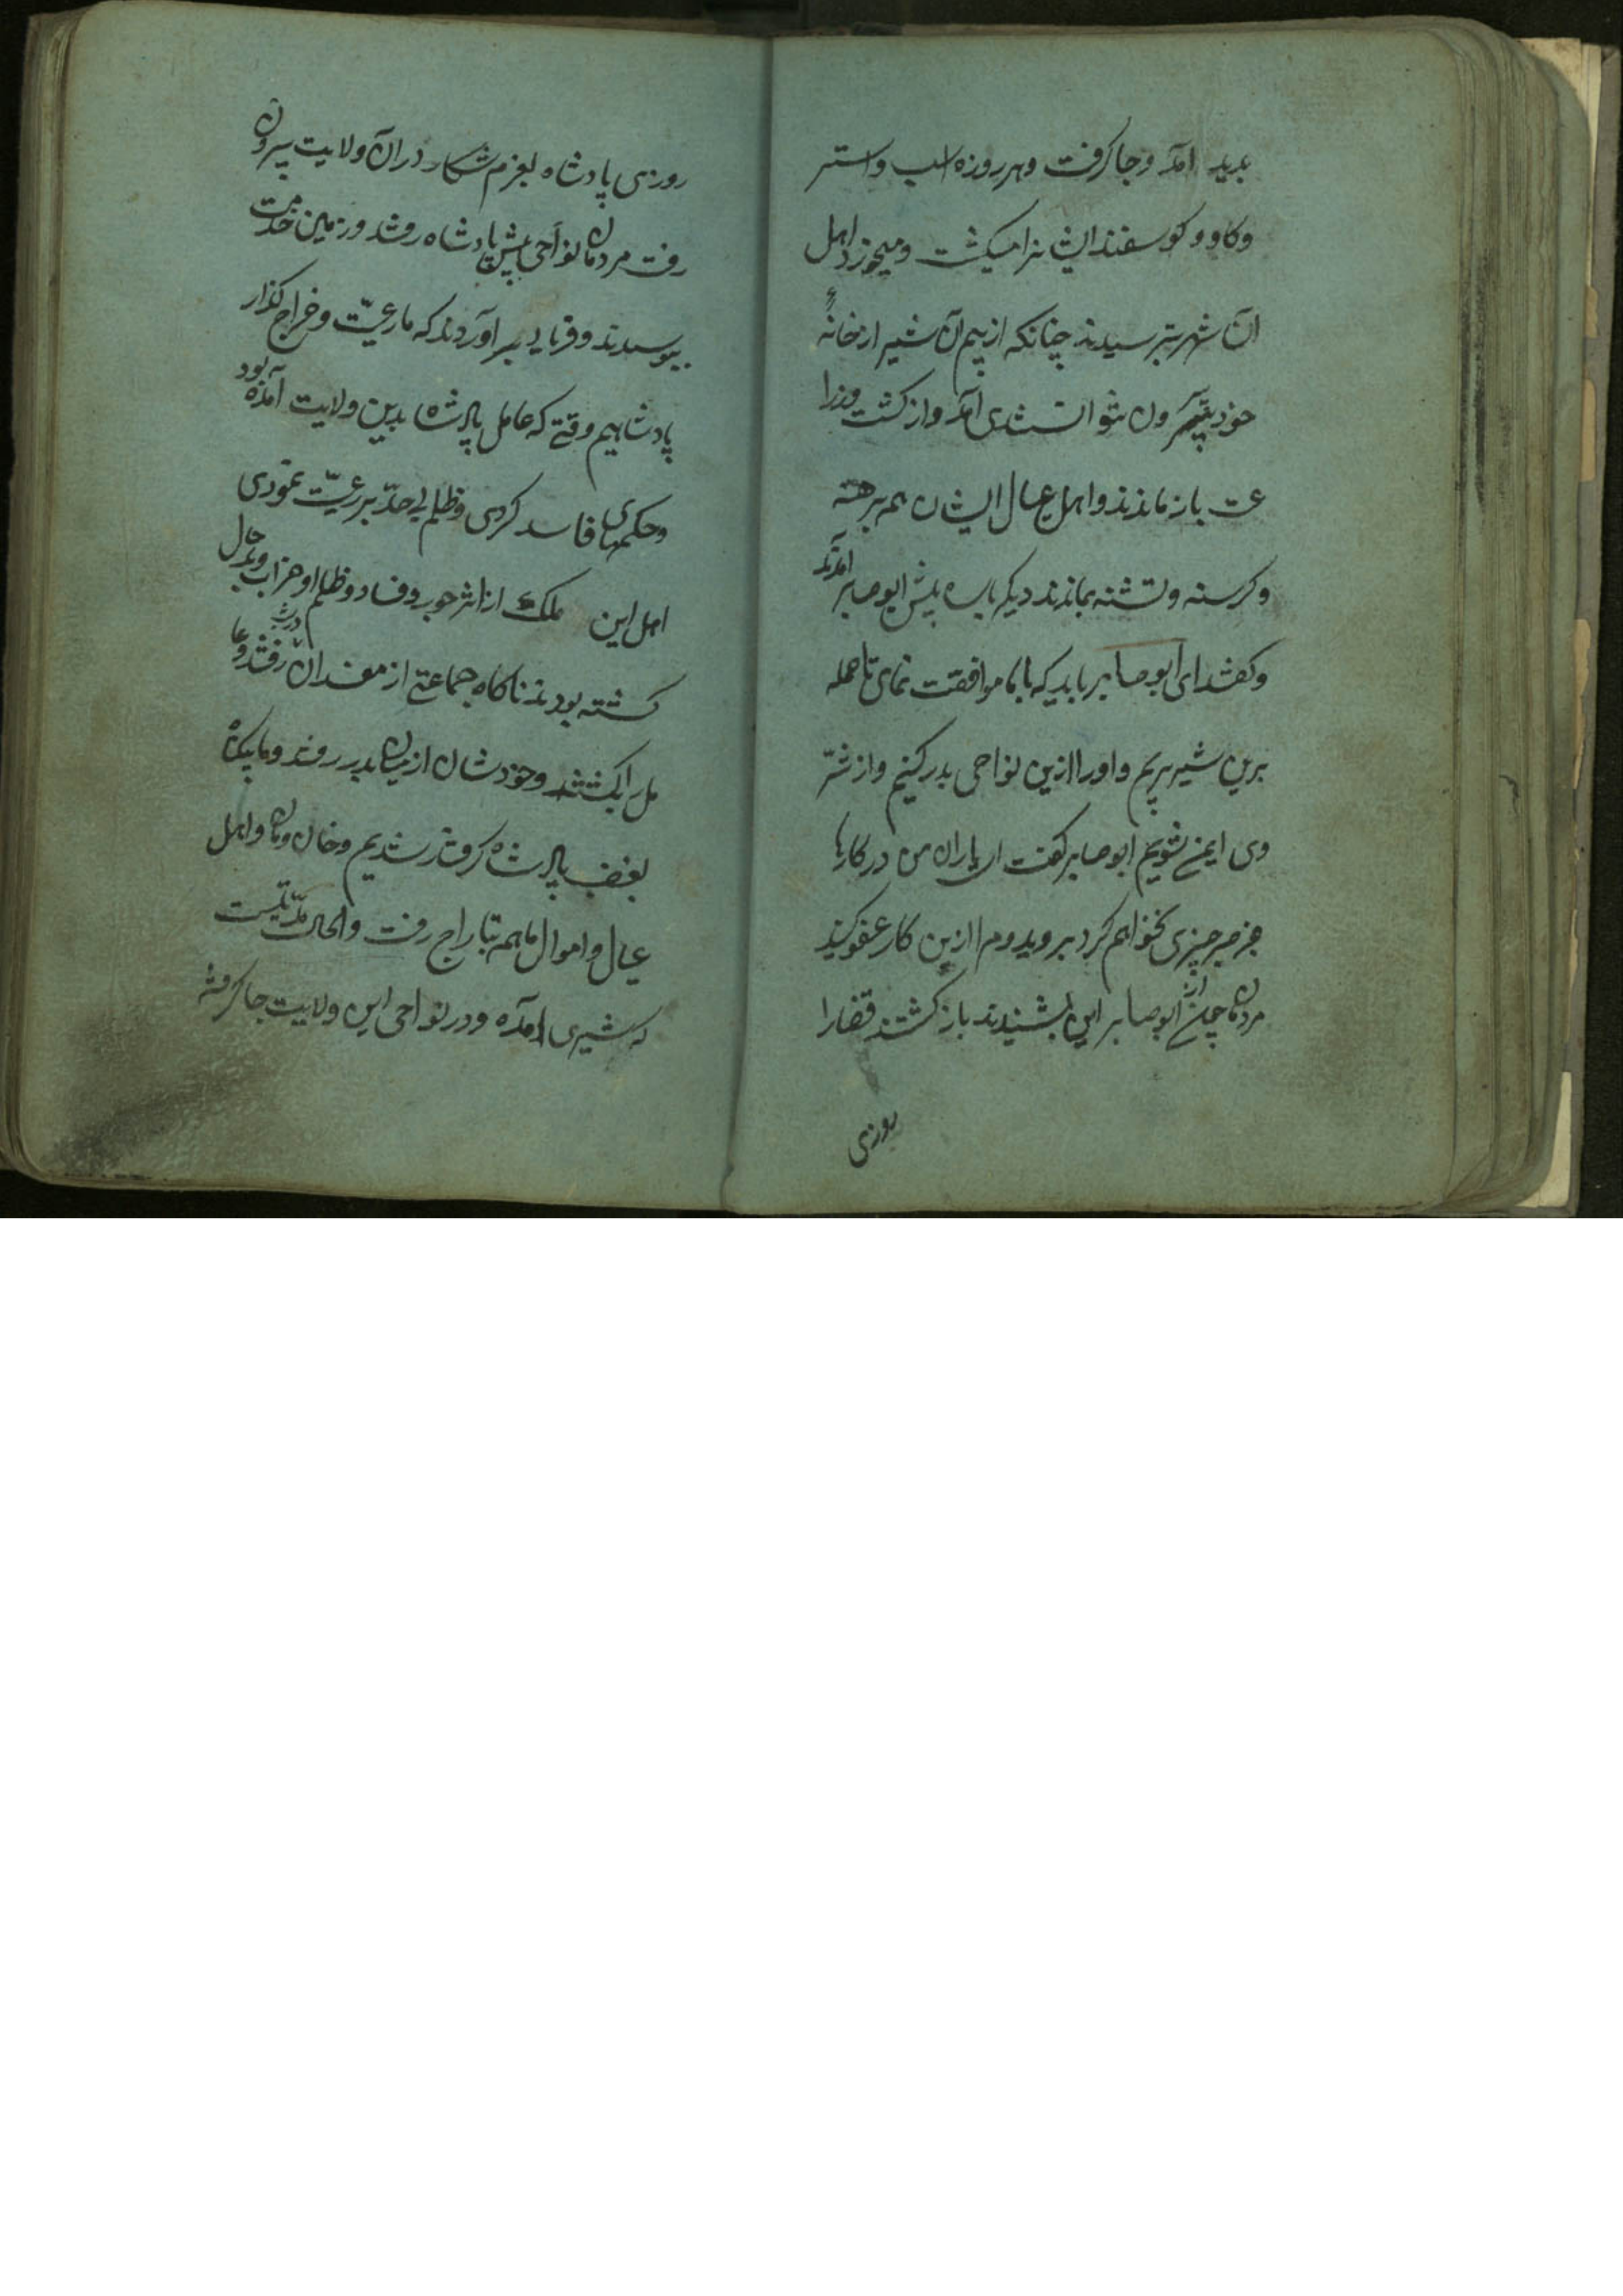 بدید آمد وجا کرفت وهر روزه اسب واستر
وکاو وکوسفند ایشانرا میکشت ومیخورد اهل
آن شهر بترسیدند چنانکه از بیم آن شیر از خانهٔ
خود بیرون نتوانستندی آمد واز کشت وزرا
عت باز ماندند واهل عیال ایشان همه برهنه
وکرسنه وتشنه بماندند دیکر باره پیش ابو صابر آمدند
وکفتند ای ابو صابر باید که با ما موافقت نمای تا حمله
برین شیر بریم واورا ازین نواحی بدر کنیم واز شرّ
وی ایمن شویم ابو صابر کفت ای یاران من در کارها
جز صبر چیزی نخواهم کرد بروید ومرا ازین کار عفو کنید
مردمان چون از ابو صابر این بشنیدند باز کشتند قضارا
روزی
روزی پادشاه بعزم شکار در آن ولایت بیرون
رفت مردمان نواحی پیش پادشاه رفتند وزمین خدمت
ببوسیدند وفریاد بر آوردند که ما رعیّت وخراج کذار
پادشاهیم وقتی که عامل پادشاه بدین ولایت آمده بود
وحکمهای فاسد کردی وظلم بی حدّ بر رعیّت نمودی
اهل این ملک از اثر جور وفساد وظلم او خراب وبد حال
کشته بودند ناکاه جماعتی از مفسدان در شب رفتند وعا
مل را بکشتند وخودشان از میان بدر رفتند وما بیکناه
بغضب پادشاه کرفتار شدیم وخان ومان واهل
عیال واموال ما همه بتاراج رفت والحال مدّتیست
که شیری آمده ودر نواحی این ولایت جا کرفته